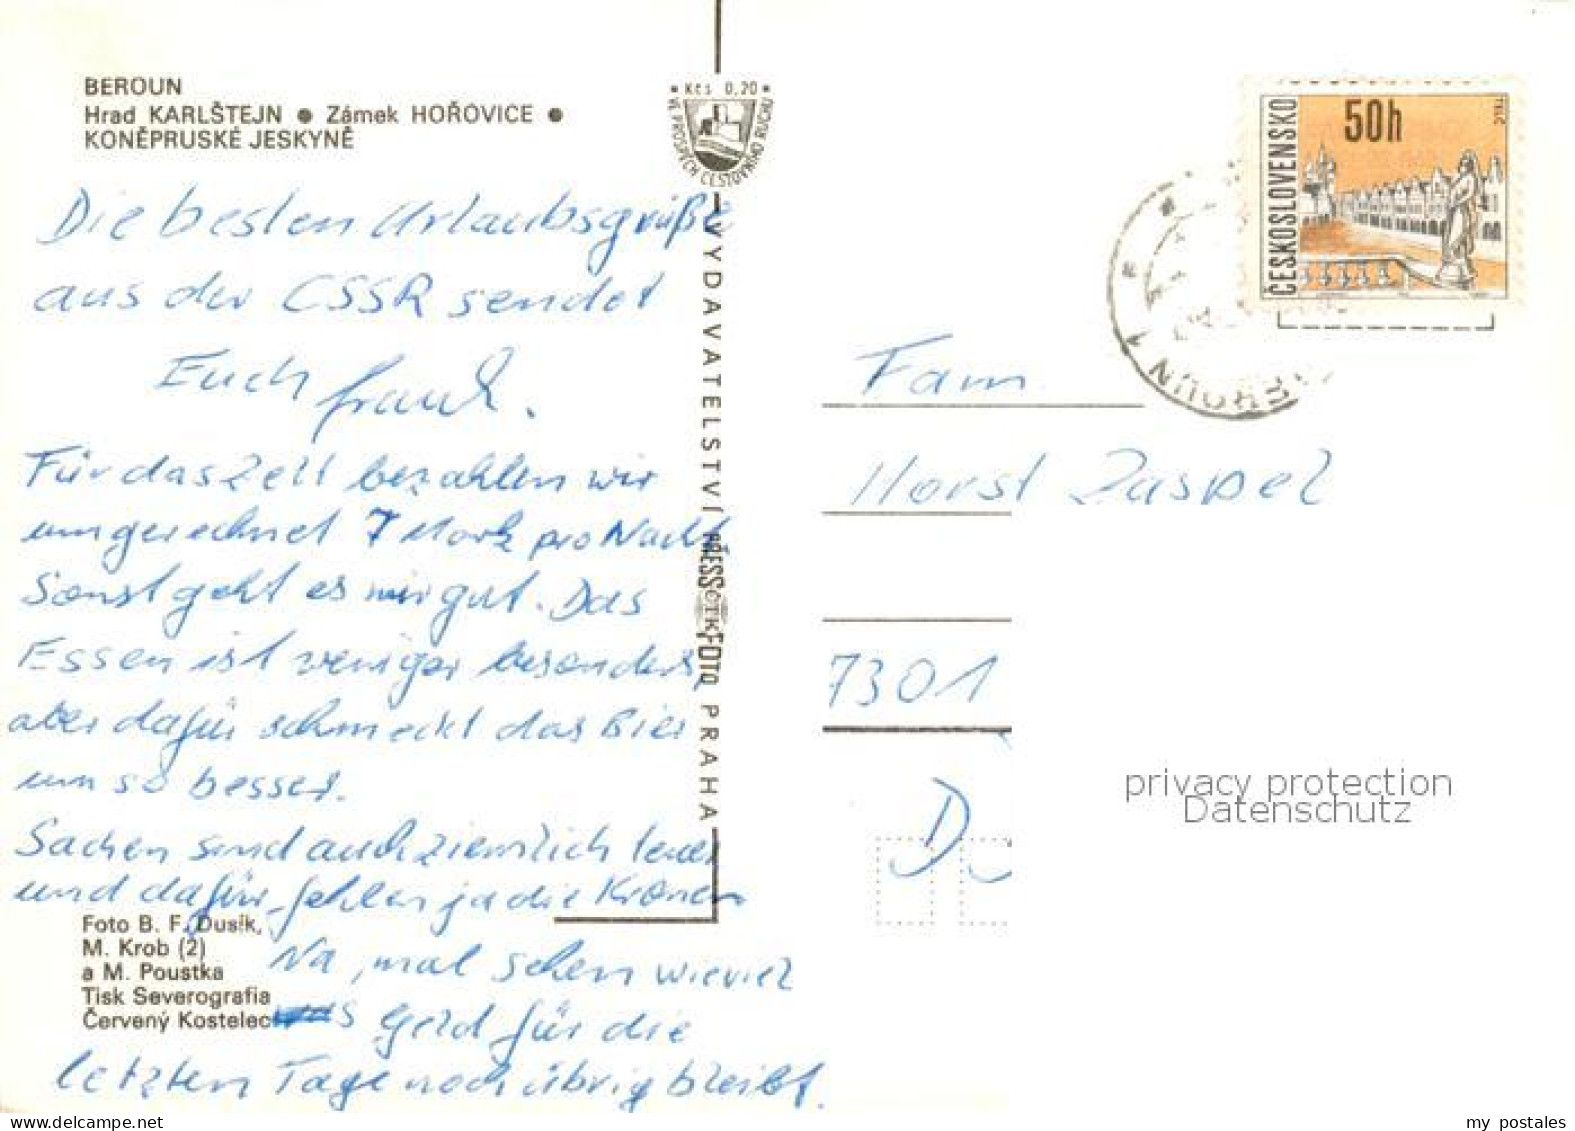 BEROUN
Hrad KARLŠTEJN ● Zámek HOŘOVICE ●
KONĚPRUSKÉ JESKYNĚ
• Kčs 0,20 •
VE PROSPĚCH CESTOVNÍHO RUCHU
Die besten Urlaubsgrüße
aus der CSSR sendet
Euch Frank.
Für das Zelt bezahlen wir
umgerechnet 7 Mark pro Nacht
Sonst geht es mir gut. Das
Essen ist weniger besonders,
aber dafür schmeckt das Bier
um so besser.
Sachen sind auch ziemlich teuer
und dafür fehlen ja die Kronen
Na, mal sehen wieviel
uns Geld für die
letzten Tage noch übrig bleibt.
Foto B. F. Dusík,
M. Krob (2)
a M. Poustka
Tisk Severografia
Červený Kostelec
VYDAVATELSTVÍ PRESSFOTO PRAHA
ČTK
ČESKOSLOVENSKO
50h
TELČ
BEROUN 1
Fam.
Horst Zaspel
7301
D
privacy protection
Datenschutz
my postales
www.delcampe.net